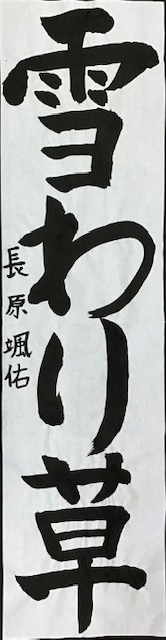 雪わり草
長原颯佑